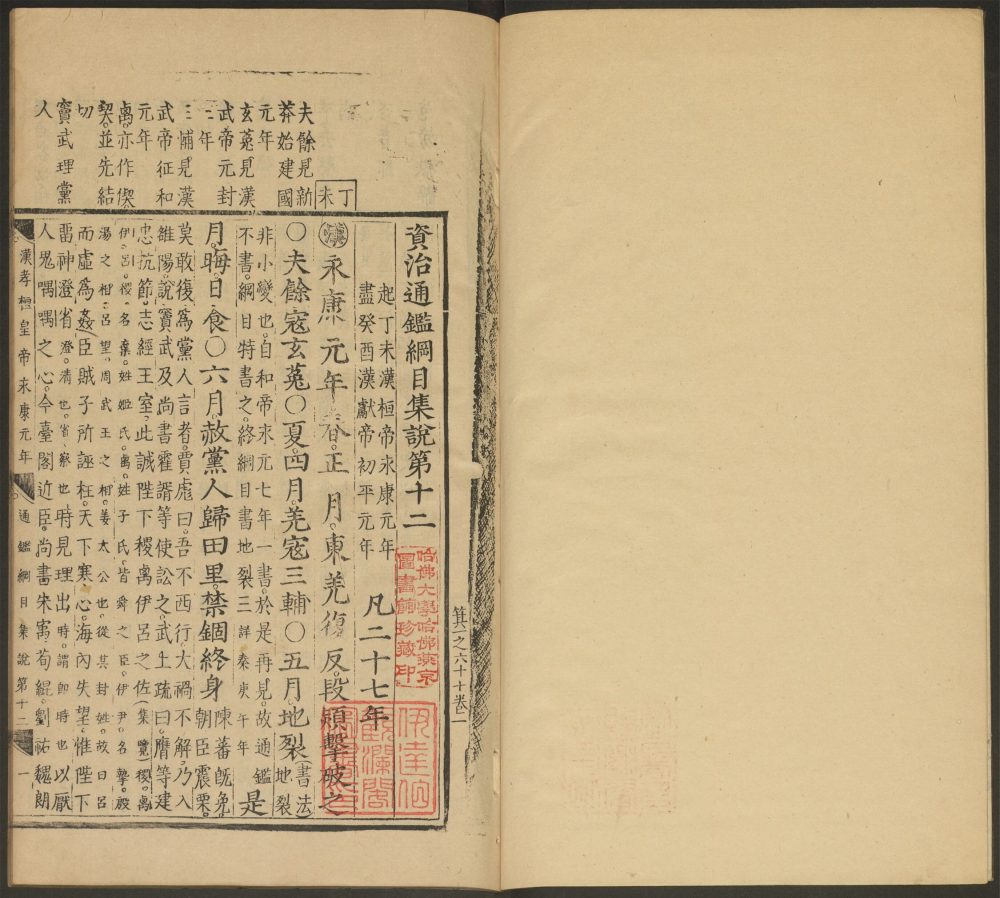 資治通鑑綱目集說第十二
起丁未漢桓帝永康元年
盡癸酉漢獻帝初平元年
凡二十七年
丁未
漢永康元年春正月東羌復反段熲擊破之
○夫餘寇玄菟○夏四月羌寇三輔○五月地裂書法地裂
非小變也自和帝永元七年一書於是再見故通鑑
不書綱目特書之終綱目書地裂三詳秦庚午年是
月晦日食○六月赦黨人歸田里禁錮終身陳蕃旣免
朝臣震栗
莫敢復爲黨人言者賈彪曰吾不西行大禍不解乃入
雒陽說竇武及尚書霍諝等使訟之武上疏曰膺等建
忠抗節志經王室此誠陛下稷卨伊呂之佐集覽稷卨
伊呂稷名棄姓姬氏卨姓子氏皆舜之臣伊尹名摯殷
湯之相呂望周武王之相姜太公也從其封姓故曰呂
而虛爲姦臣賊子所誣枉天下寒心海內失望惟陛下
畱神澄省澄清也省察也時見理出時謂卽時也以厭
人鬼喁喁之心今臺閣近臣尚書朱㝢荀緄劉祐魏朗
夫餘見新
莽始建國
元年
玄菟見漢
武帝元封
三年
三輔見漢
武帝征和
元年
卨亦作偰
契並先結
切
竇武理黨
人
漢孝桓皇帝永康元年
通鑑綱目集說第十二
一
箕一之六十十卷二
哈佛大學哈佛燕京
圖書館珍藏印